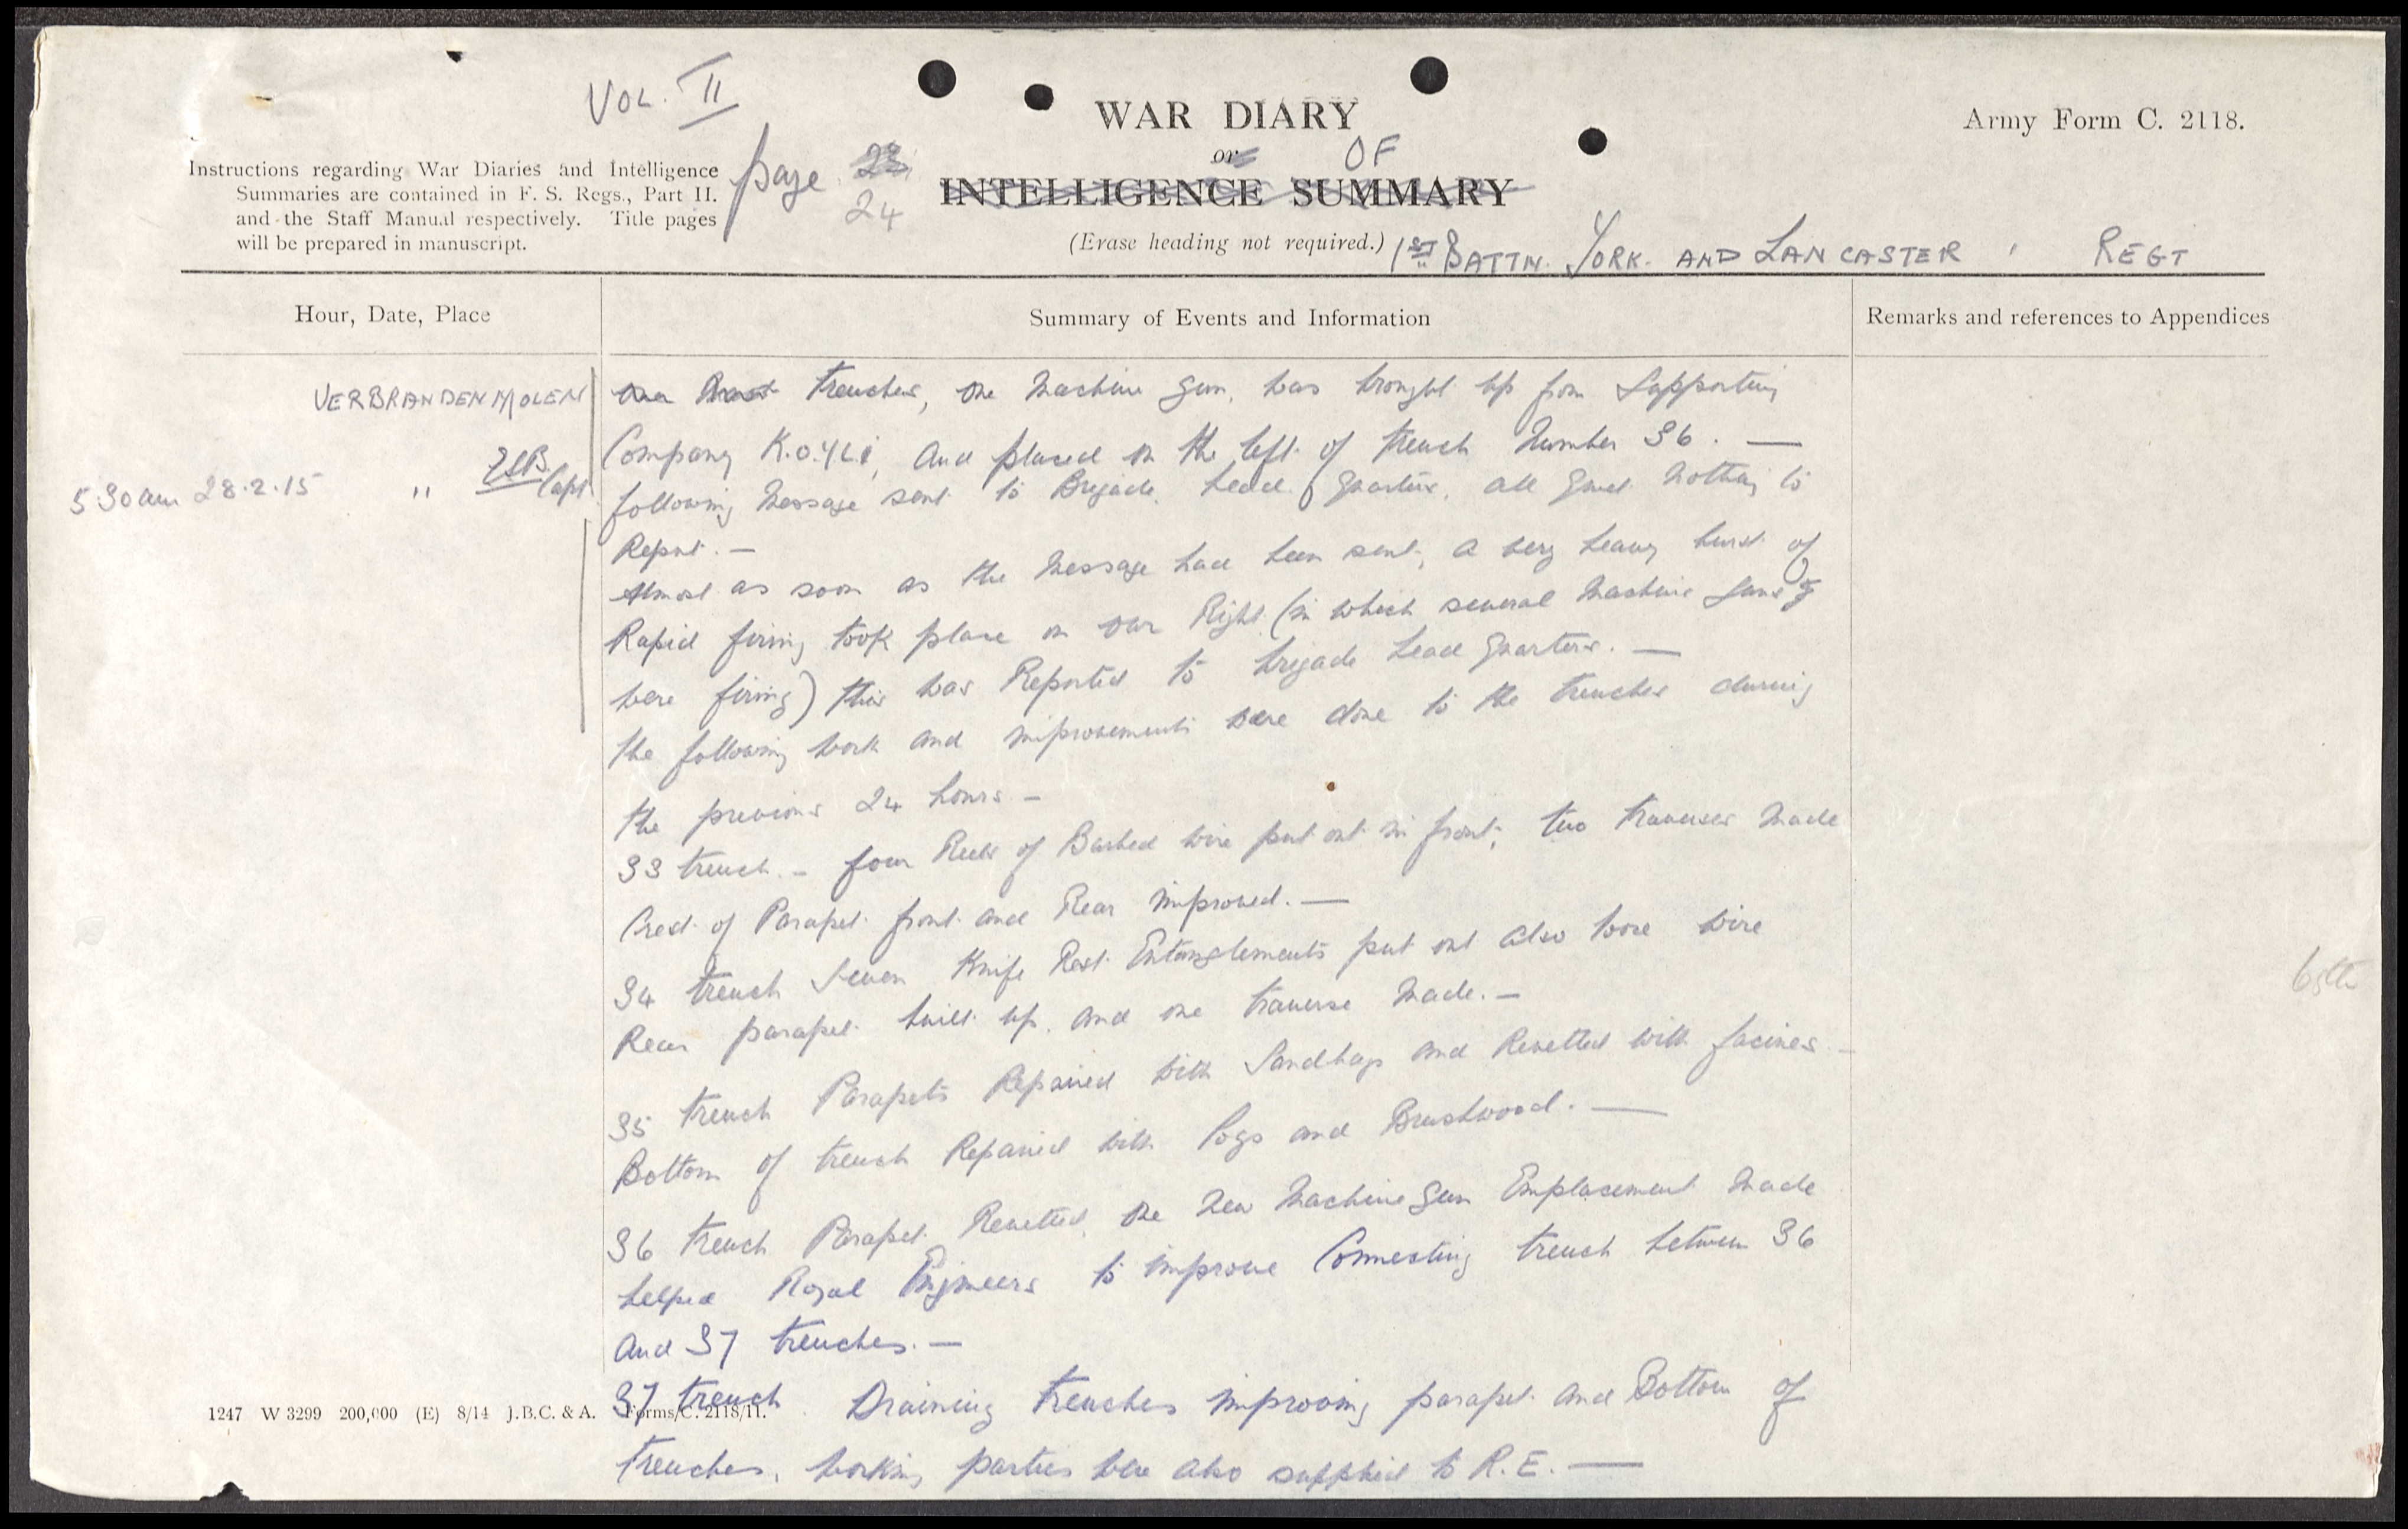 VOL. II
WAR DIARY
Army Form C. 2118.
or OF
Instructions regarding War Diaries and Intelligence
Summaries are contained in F. S. Regs., Part II.
and the Staff Manual respectively. Title pages
will be prepared in manuscript.
page 23
24
INTELLIGENCE SUMMARY
(Erase heading not required.) 1ST BATTN. YORK. AND LANCASTER REGT
Hour, Date, Place
Summary of Events and Information
Remarks and references to Appendices
VERBRANDENMOLEN
trenches, one Machine Gun, was brought up from Supporting
Company K.O.Y.L.I, and placed on the left of trench Number 36. —
5.30 am 28.2.15 " Capt
following Message sent to Brigade Head Quarters, all Quiet Nothing to
Report. —
Almost as soon as the Message had been sent, a very heavy burst of
Rapid firing took place on our Right (in which several Machine Guns
were firing) this was Reported to brigade Head Quarters. —
the following work and improvements were done to the trenches during
the previous 24 hours —
33 trench. — four Reels of Barbed wire put out in front, two traverses Made
Crest of Parapet front and Rear improved. —
34 trench Seven Knife Rest Entanglements put out also loose wire
Rear parapet built up, and one traverse Made. —
35 trench Parapets Repaired with Sandbags and Revetted with facines —
Bottom of trench Repaired with Logs and Brushwood. —
36 trench Parapet Revetted, one New Machine Gun Emplacement Made
helped Royal Engineers to improve Connecting trench between 36
and 37 trenches. —
37 trench Draining trenches improving parapet and Bottom of
trenches, working parties were also supplied to R.E. —
65th
1247 W 3299 200,000 (E) 8/14 J.B.C. & A. Forms/C. 2118/11.